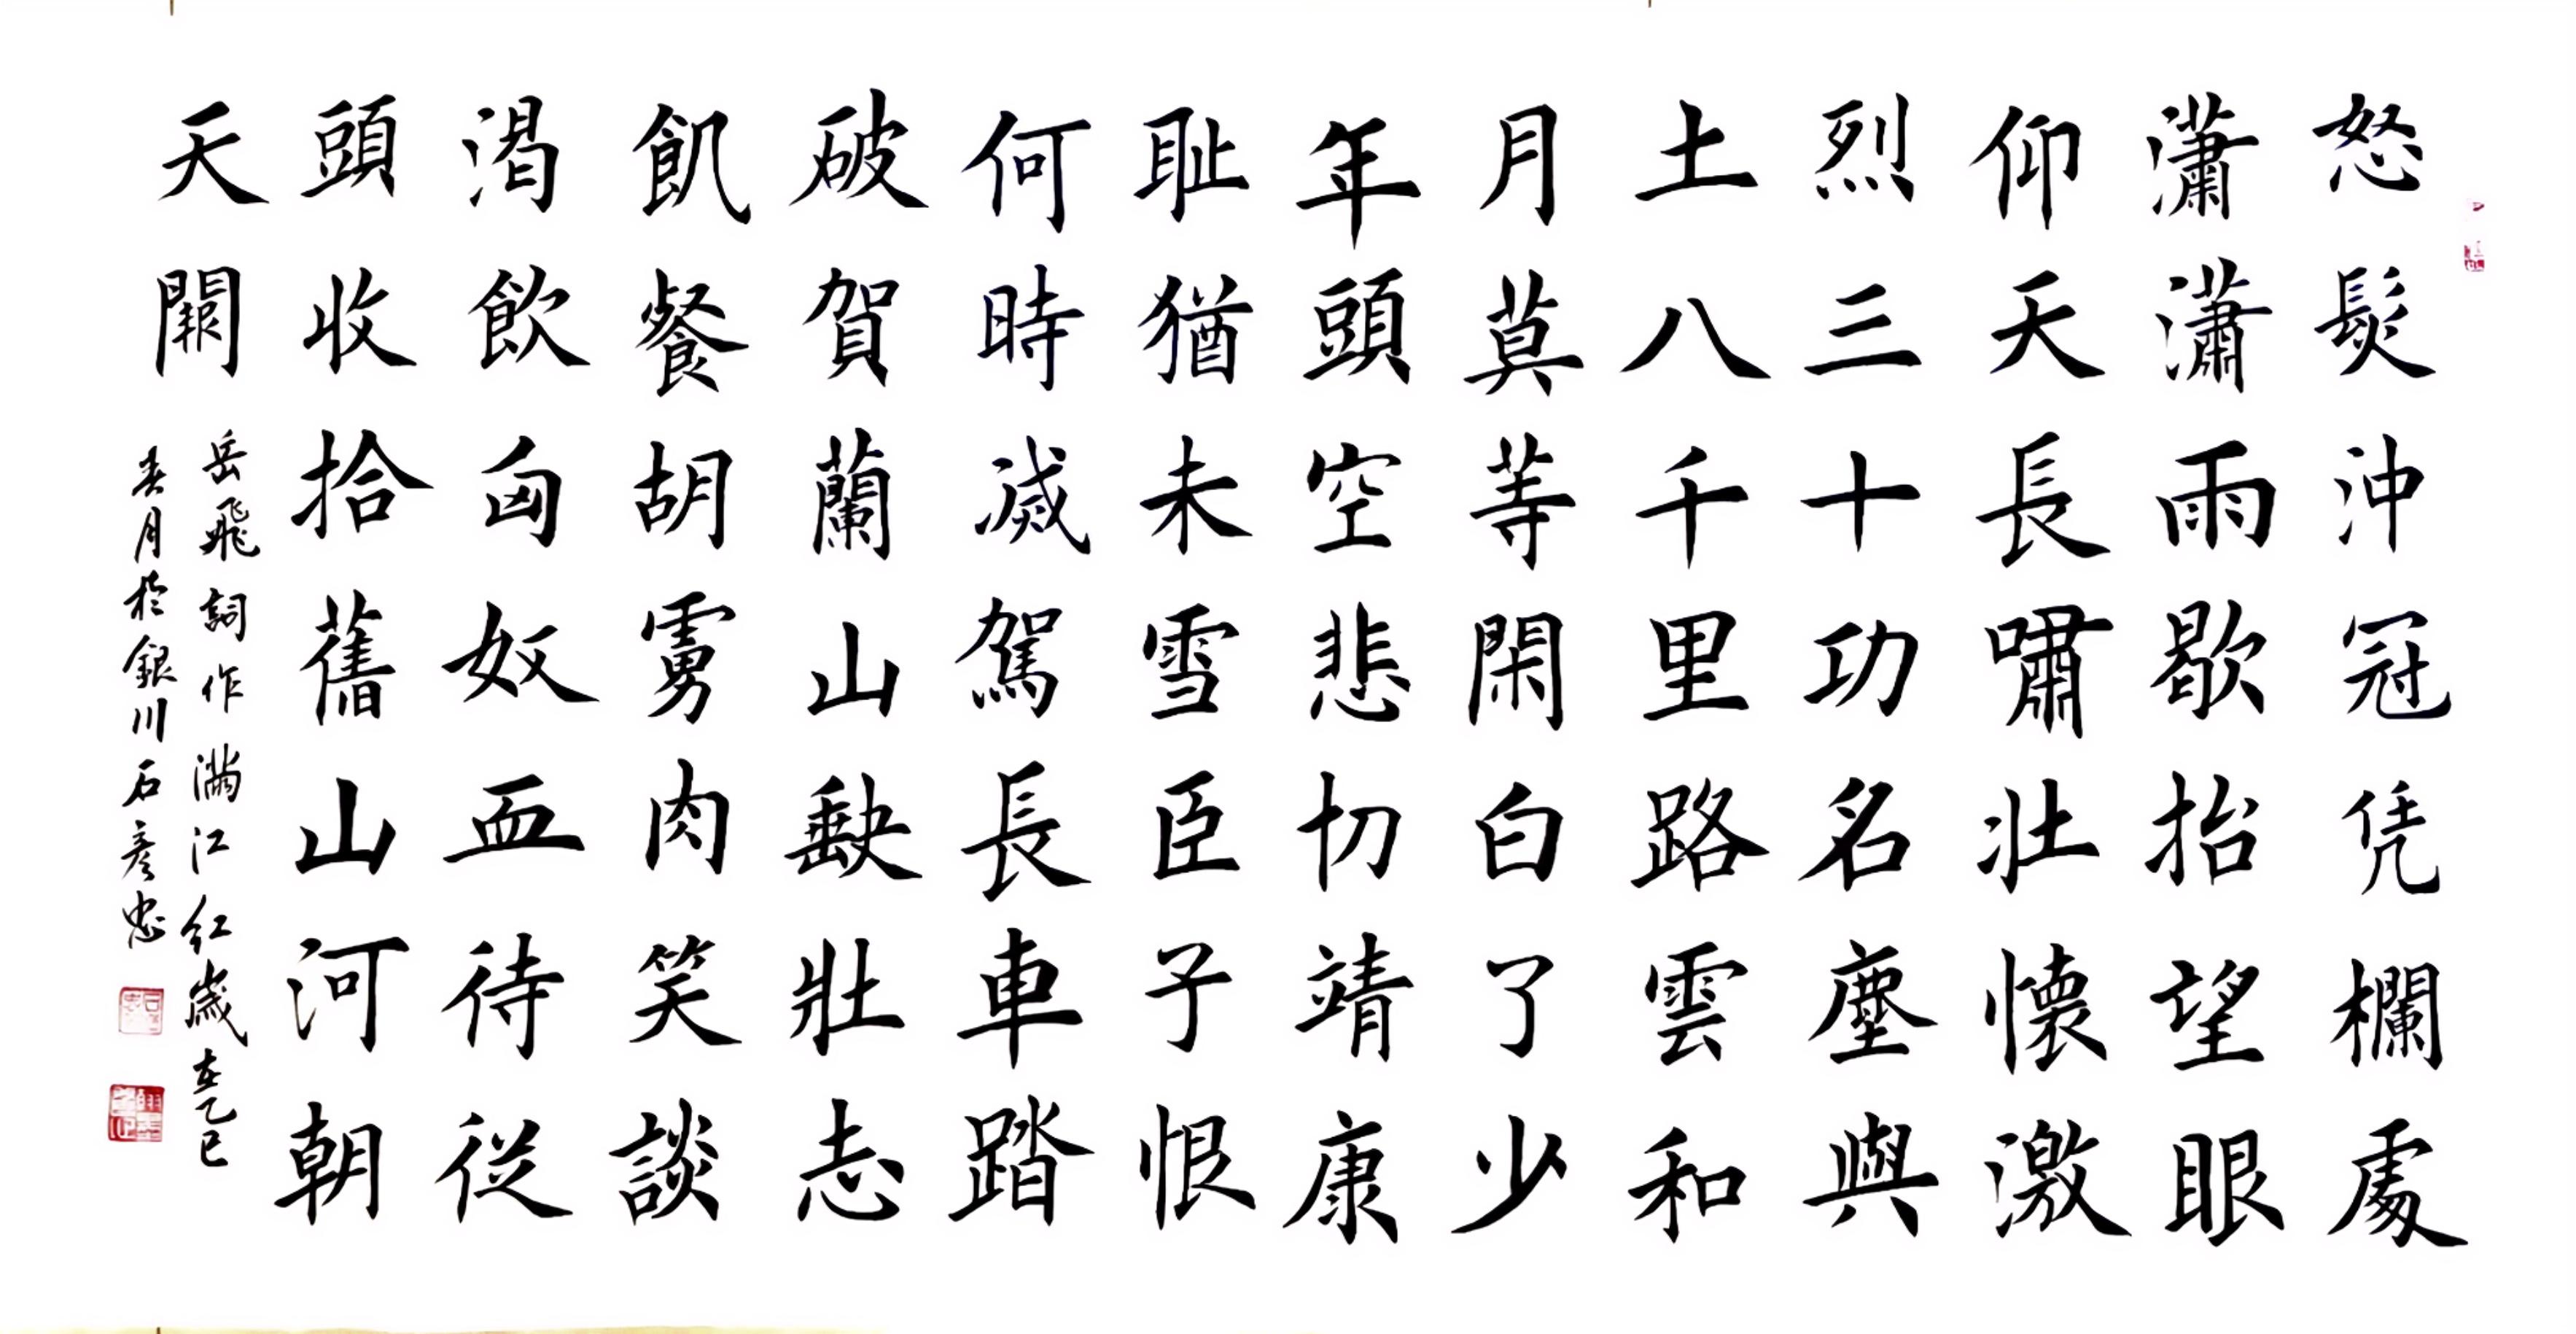 怒髮沖冠凭欄處
瀟瀟雨歇抬望眼
仰天長嘯壯懷激
烈三十功名塵與
土八千里路雲和
月莫等閑白了少
年頭空悲切靖康
耻猶未雪臣子恨
何時滅駕長車踏
破賀蘭山缺壯志
飢餐胡虜肉笑談
渴飲匈奴血待從
頭收拾舊山河朝
天闕
岳飛詞作滿江紅歲在乙巳
春月於銀川石彥忠